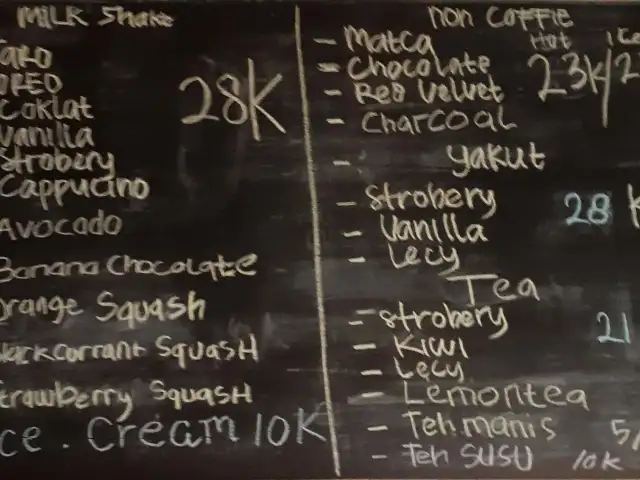 MiLK Shake
Taro
OREO
Coklat
Vanilla
Strobery
Cappucino
28K
Avocado
Banana Chocolate
Orange Squash
Blackcorrant SquasH
Strawberry SquasH
Ice . Cream 10K
NON COFFIE
Hot
- Matca
- Chocolate
- Red Velvet
23K/2
- CHarCOAL
- Yakut
- Strobery
- Vanilla
- Lecy
28 K
Tea
- Strobery
- Kiwi
- Lecy
21
- Lemontea
- Teh manis 5/
- Teh SUSU 10K